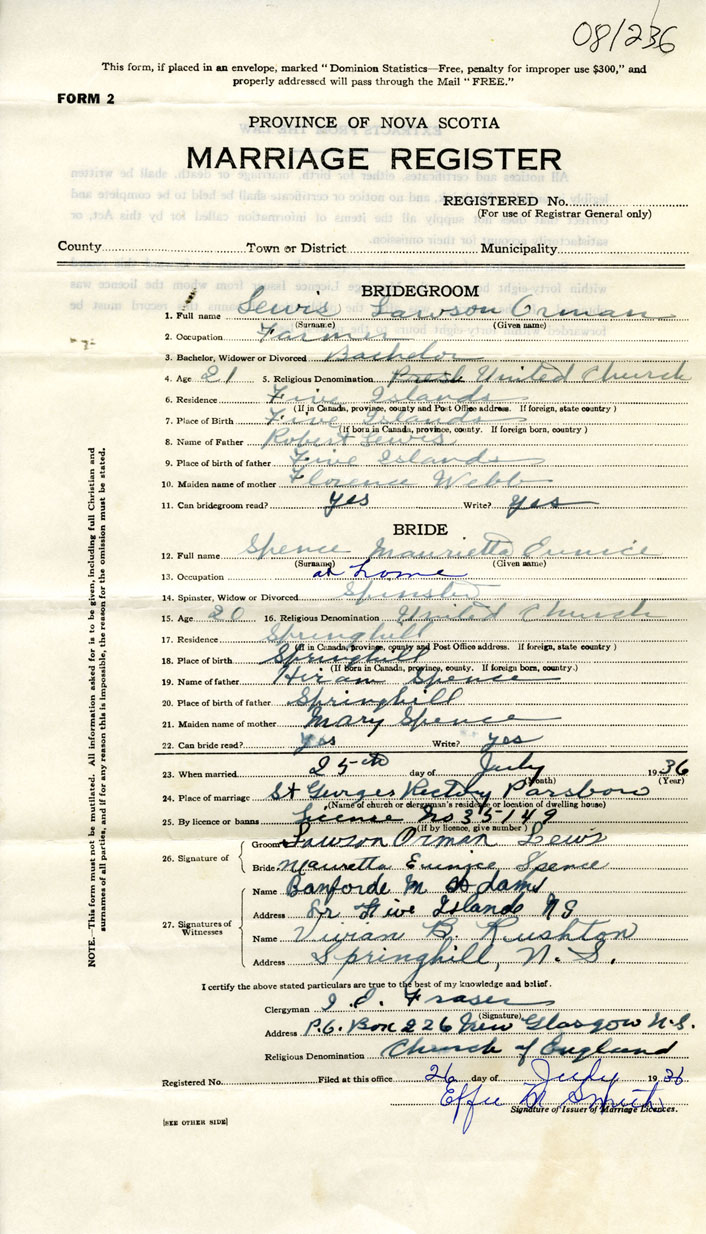 08/236
This form, if placed in an envelope, marked "Dominion Statistics—Free, penalty for improper use $300," and
properly addressed will pass through the Mail "FREE."
FORM 2
PROVINCE OF NOVA SCOTIA
MARRIAGE REGISTER
REGISTERED No.
(For use of Registrar General only)
County Town or District Municipality
BRIDEGROOM
1. Full name Lewis Lawson Orman
(Surname) (Given name)
2. Occupation Farmer
3. Bachelor, Widower or Divorced Bachelor
4. Age 21 5. Religious Denomination Presb United Church
6. Residence Five Islands
(If in Canada, province, county and Post Office address. If foreign, state country)
7. Place of Birth Five Islands
(If born in Canada, province, county. If foreign born, country)
8. Name of Father Robert Lewis
9. Place of birth of father Five Islands
10. Maiden name of mother Florence Webb
11. Can bridegroom read? yes Write? yes
BRIDE
12. Full name Spence Maurietta Eunice
(Surname) (Given name)
13. Occupation at home
14. Spinster, Widow or Divorced Spinster
15. Age 20 16. Religious Denomination United Church
17. Residence Springhill
(If in Canada, province, county and Post Office address. If foreign, state country)
18. Place of birth Springhill
(If born in Canada, province, county. If foreign born, country.)
19. Name of father Hiram Spence
20. Place of birth of father Springhill
21. Maiden name of mother Mary Spence
22. Can bride read? yes Write? yes
23. When married 25th day of July 1936
(Month) (Year)
24. Place of marriage St Georges Rectory Parsboro
(Name of church or clergyman's residence or location of dwelling house)
25. By licence or banns License No 35149
(If by licence, give number)
26. Signature of
Groom Lawson Orman Lewis
Bride Mauretta Eunice Spence
27. Signatures of Witnesses
Name Banforde M Adams
Address Lr Five Islands NS
Name Vivian B. Rushton
Address Springhill, N.S.
I certify the above stated particulars are true to the best of my knowledge and belief.
Clergyman Fraser
(Signature)
Address P.O. Box 226 New Glasgow N.S.
Religious Denomination Church of England
Registered No. Filed at this office 26 day of July 1936
Effie M Smith
Signature of Issuer of Marriage Licences.
[SEE OTHER SIDE]
NOTE.—This form must not be mutilated. All information asked for is to be given, including full Christian and
surnames of all parties, and if for any reason this is impossible, the reason for the omission must be stated.